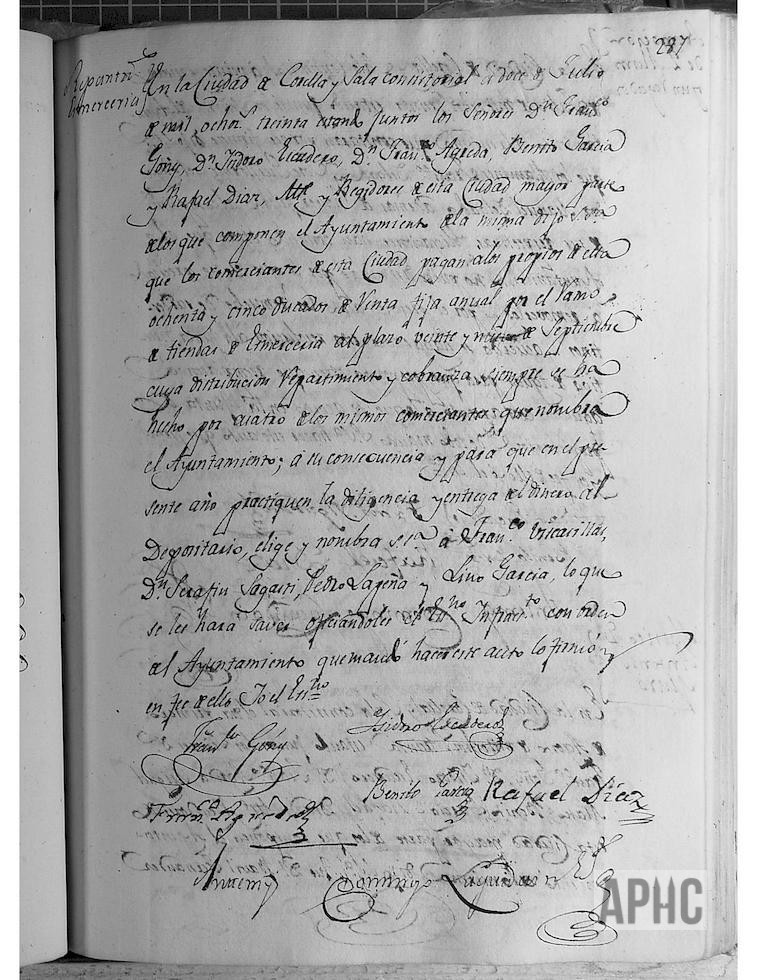 287
Repartim.to
Emerceria
En la Ciudad de Corella y Sala consistorial a doce de Julio
de mil, ochos. treinta estand. juntos los Señores Dn. Fran.co
Goñy, Dn. Ysidoro Escudero, Dn. Fran.co Agreda, Benito Garcia
y Rafael Diaz, Alc.e y Regidores de esta Ciudad mayor parte
de los que componen el Ayuntamiento de la misma dijo S.ria
que los comerciantes de esta Ciudad pagan a los propios de ella
ochenta y cinco ducados de Renta fija anual por el Ramo
de tiendas de Emerceria al plazo veinte y nueve de Septiembre
cuya distribucion Repartimiento y cobranza siempre se ha
hecho por cuatro de los mismos comerciantes que nombra
el Ayuntamiento; á su consecuencia y para que en el pre-
sente año practiquen la diligencia y entrega del dinero al
Depositario, elige y nombra S.S.a á Fran.co Viscasillas,
Dn. Serafin Sagasti, Pedro Lapeña y Lino Garcia, lo que
se les hará saver oficiandoles el Es.no Infraes.to con orden
del Ayuntamiento que mandó hacer este acto lo firmó
en fee de ello Yo el Es.no
Fran.co Goñy
Ysidro Escudero
Benito Garcia Rafael Díaz
Fran.co Agreda
Antemy
Domingo
APHC